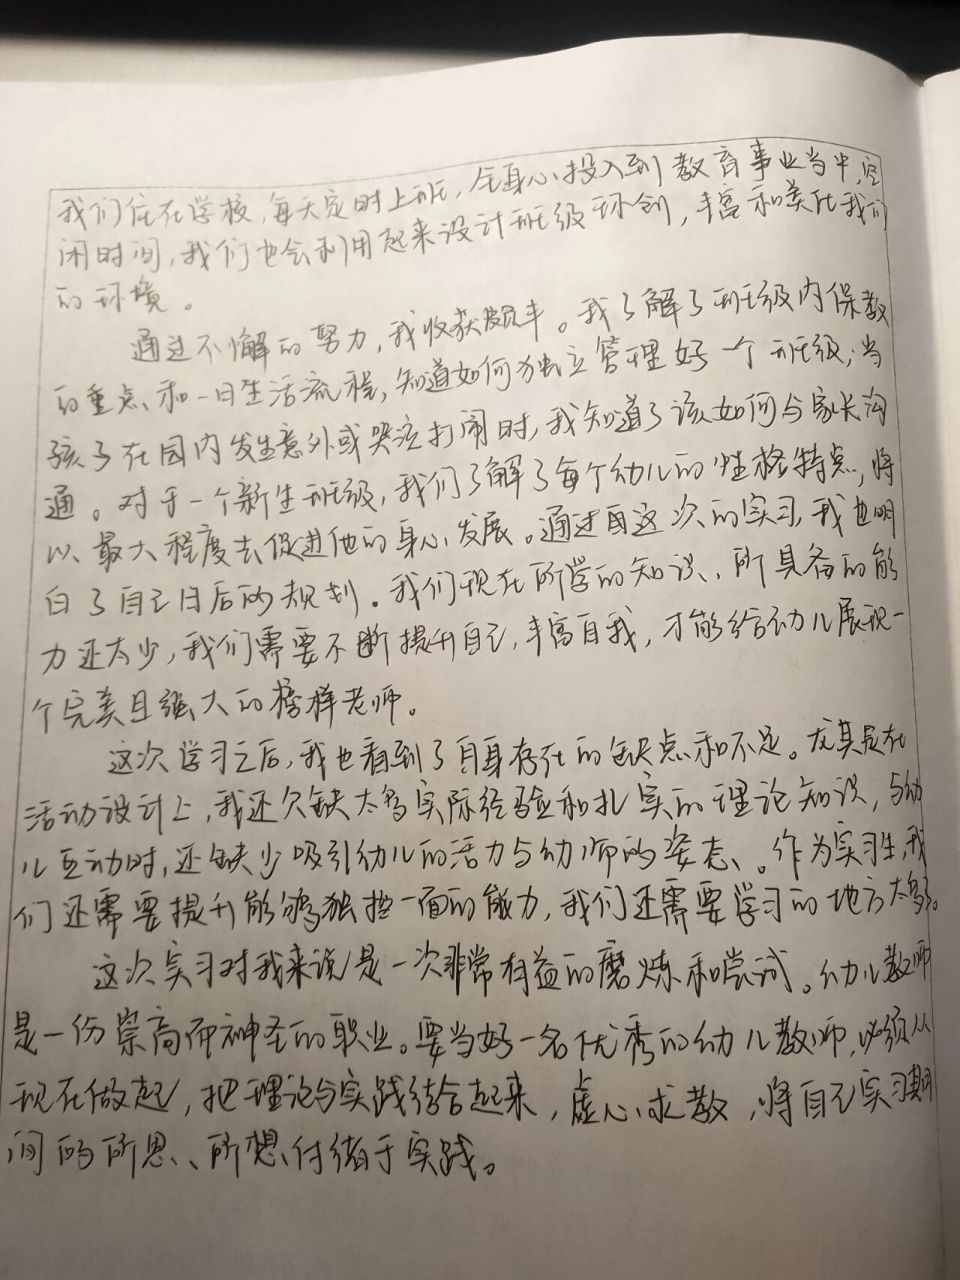 我们住在学校,每天定时上班,全身心投入到教育事业当中,空
闲时间,我们也会利用起来设计班级环创,丰富和美化我们
的环境。
通过不懈的努力,我收获颇丰。我了解了班级内保教
的重点和一日生活流程,知道如何独立管理好一个班级;当
孩子在园内发生意外或哭泣打闹时,我知道了该如何与家长沟
通。对于一个新生班级,我们了解了每个幼儿的性格特点,将
以最大程度去促进他的身心发展。通过这次的实习,我也明
白了自己日后的规划。我们现在所学的知识、所具备的能
力还太少,我们需要不断提升自己,丰富自我,才能给幼儿展现一
个完美且强大的榜样老师。
这次学习之后,我也看到了自身存在的缺点和不足。尤其是在
活动设计上,我还欠缺太多实际经验和扎实的理论知识,与幼
儿互动时,还缺少吸引幼儿的活力与幼师的姿态、。作为实习生,我
们还需要提升能够独挡一面的能力,我们还需要学习的地方太多。
这次实习对我来说是一次非常有益的磨炼和尝试。幼儿教师
是一份崇高而神圣的职业。要当好一名优秀的幼儿教师,必须从
现在做起,把理论与实践结合起来,虚心求教,将自己实习期
间的所思、所想付诸于实践。